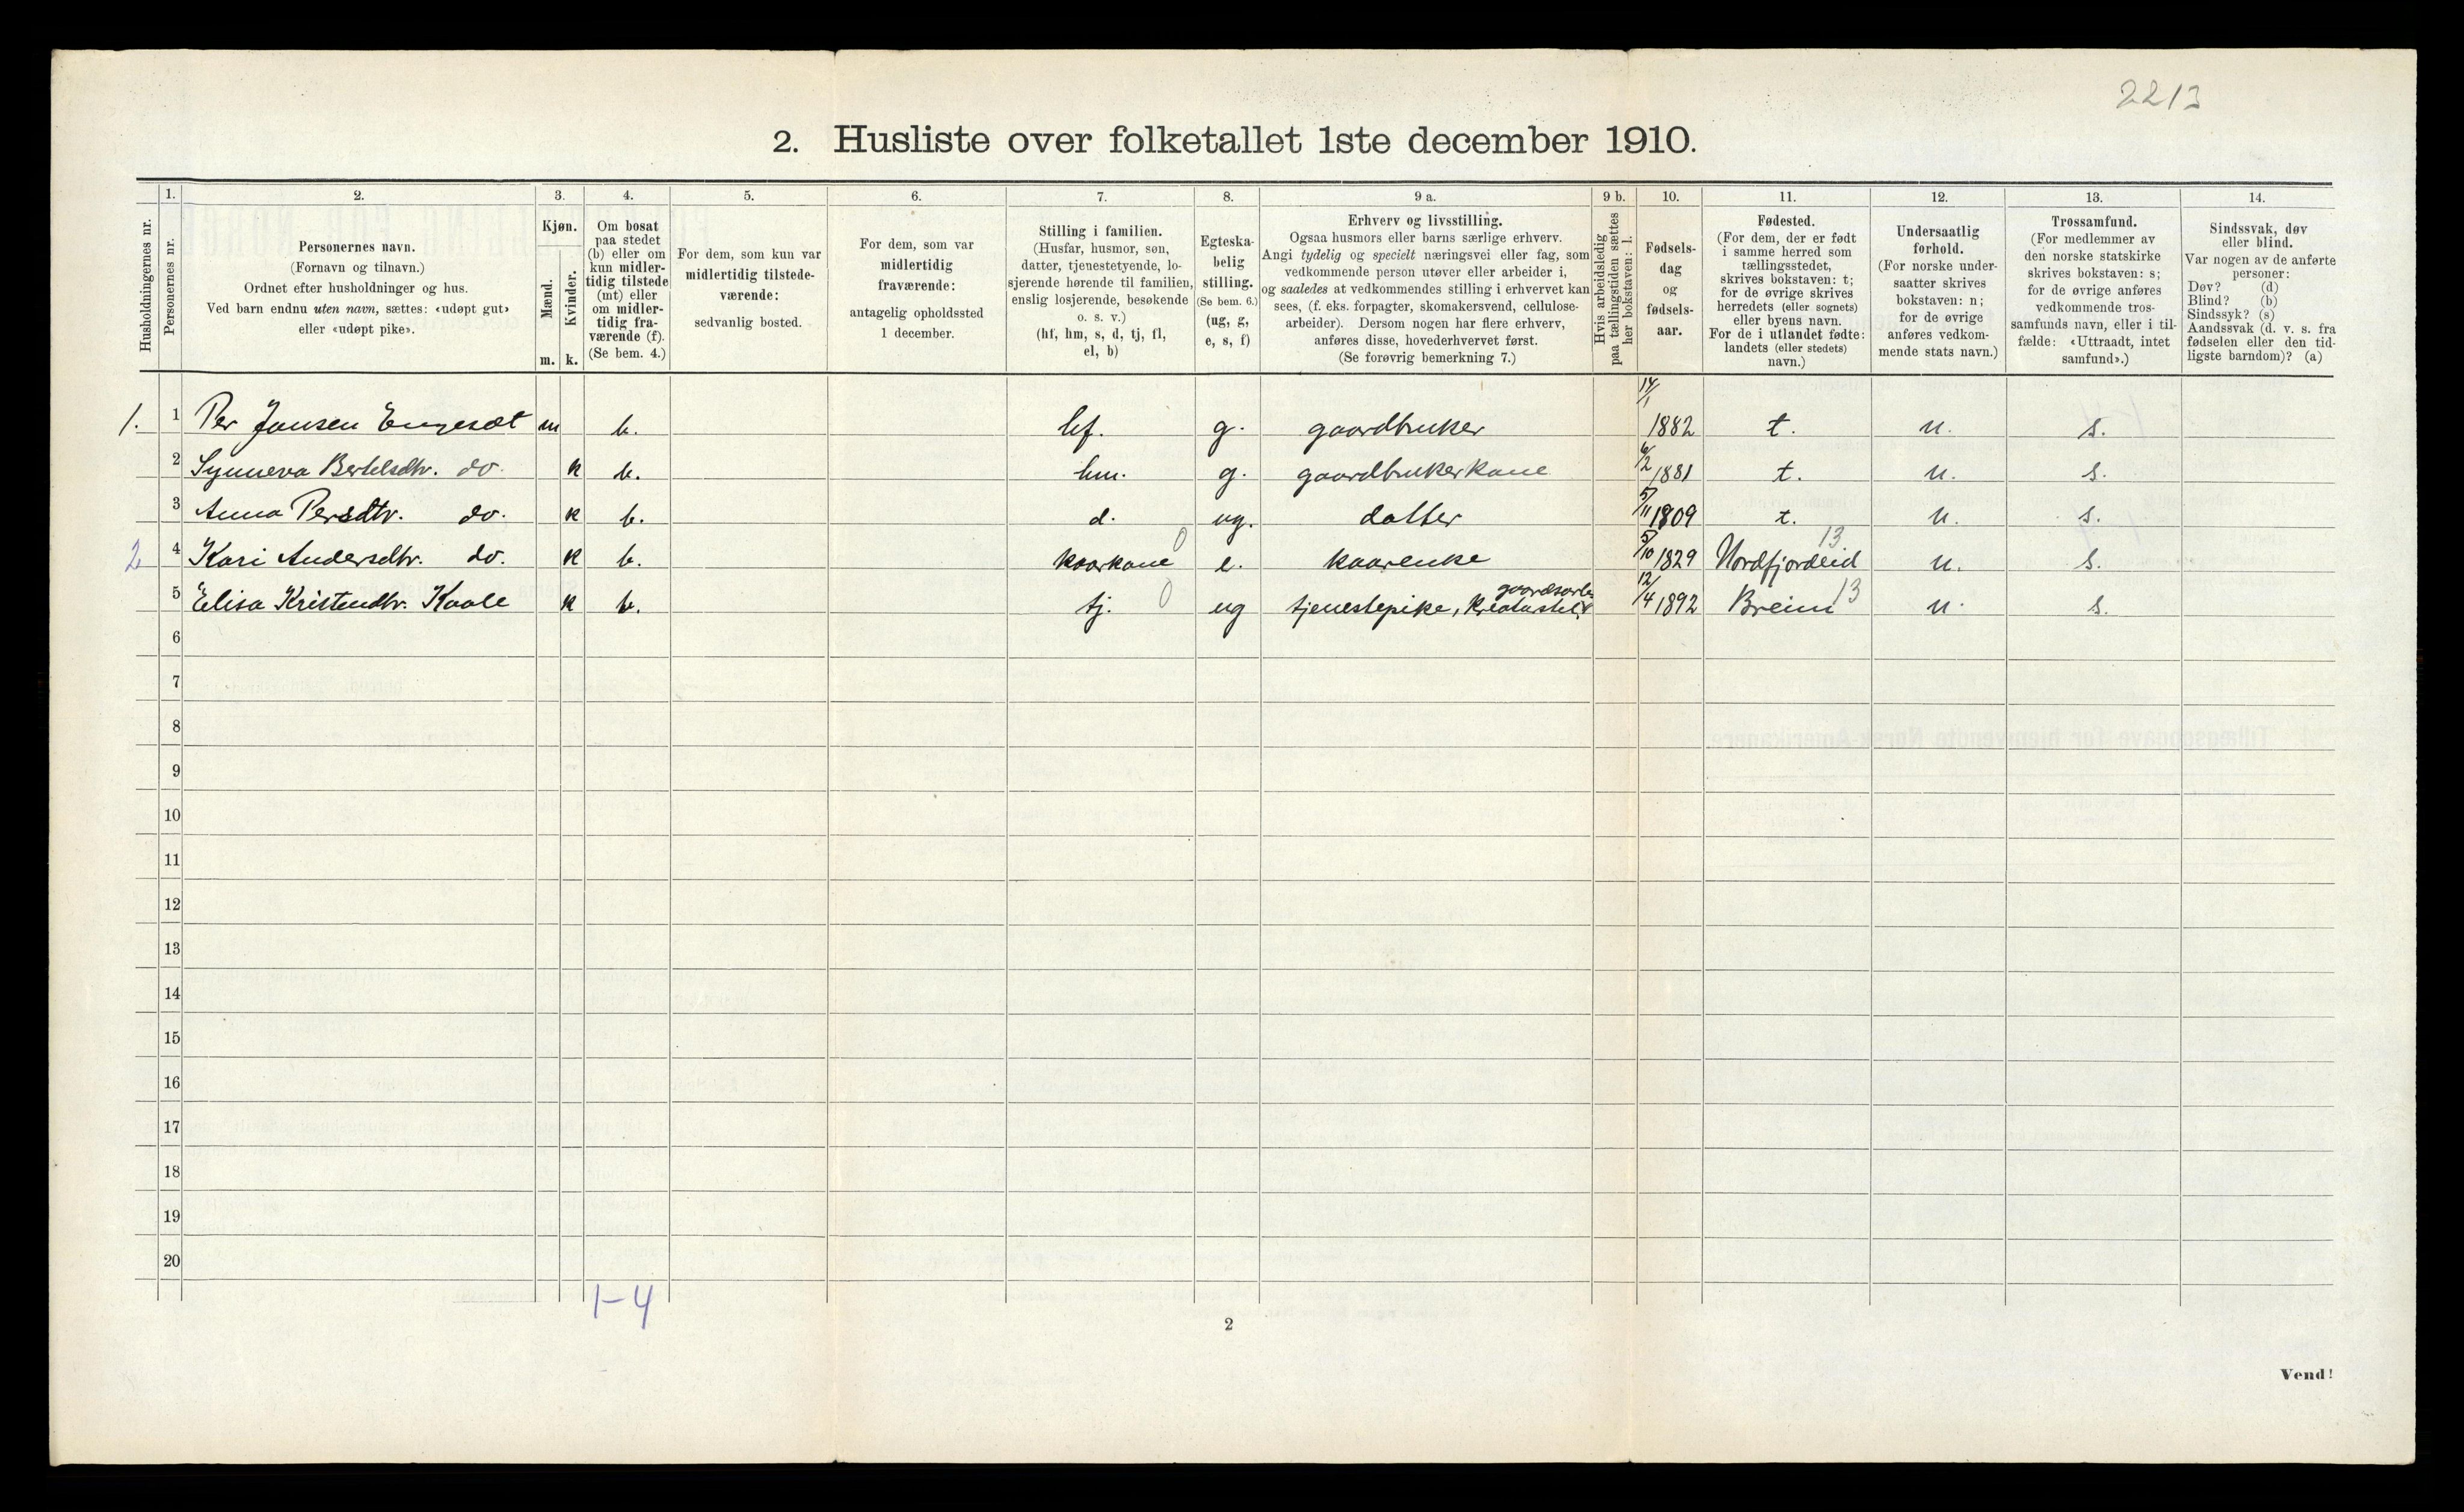 2213
2. Husliste over folketallet 1ste december 1910.
Husholdningernes nr.
1.
Personernes nr.
2.
Personernes navn.
(Fornavn og tilnavn.)
Ordnet efter husholdninger og hus.
Ved barn endnu uten navn, sættes: «udøpt gut»
eller «udøpt pike».
3.
Kjøn.
Mænd.
Kvinder.
m. k.
4.
Om bosat
paa stedet
(b) eller om
kun midler-
tidig tilstede
(mt) eller
om midler-
tidig fra-
værende (f).
(Se bem. 4.)
5.
For dem, som kun var
midlertidig tilstede-
værende:
sedvanlig bosted.
6.
For dem, som var
midlertidig
fraværende:
antagelig opholdssted
1 december.
7.
Stilling i familien.
(Husfar, husmor, søn,
datter, tjenestetyende, lo-
sjerende hørende til familien,
enslig losjerende, besøkende
o. s. v.)
(hf, hm, s, d, tj, fl,
el, b)
8.
Egteska-
belig
stilling.
(Se bem. 6.)
(ug, g,
e, s, f)
9 a.
Erhverv og livsstilling.
Ogsaa husmors eller barns særlige erhverv.
Angi tydelig og specielt næringsvei eller fag, som
vedkommende person utøver eller arbeider i,
og saaledes at vedkommendes stilling i erhvervet kan
sees, (f. eks. forpagter, skomakersvend, cellulose-
arbeider). Dersom nogen har flere erhverv,
anføres disse, hovederhvervet først.
(Se forøvrig bemerkning 7.)
9 b.
Hvis arbeidsledig
paa tællingstiden sættes
her bokstaven: l.
10.
Fødsels-
dag
og
fødsels-
aar.
11.
Fødested.
(For dem, der er født
i samme herred som
tællingsstedet,
skrives bokstaven: t;
for de øvrige skrives
herredets (eller sognets)
eller byens navn.
For de i utlandet fødte:
landets (eller stedets)
navn.)
12.
Undersaatlig
forhold.
(For norske under-
saatter skrives
bokstaven: n;
for de øvrige
anføres vedkom-
mende stats navn.)
13.
Trossamfund.
(For medlemmer av
den norske statskirke
skrives bokstaven: s;
for de øvrige anføres
vedkommende tros-
samfunds navn, eller i til-
fælde: «Uttraadt, intet
samfund».)
14.
Sindssvak, døv
eller blind.
Var nogen av de anførte
personer:
Døv? (d)
Blind? (b)
Sindssyk? (s)
Aandssvak (d. v. s. fra
fødselen eller den tid-
ligste barndom)? (a)
1. 1 Per Jansen Engeset m b. hf. g. gaardbruker 14/1 1882 t. n. s.
2 Synneva Bertelsdtr. do. k b. hm. g. gaardbrukerkone 6/2 1881 t. n. s.
3 Anna Persdtr. do. k b. d. ug. datter 5/11 1809 t. n. s.
2 4 Kari Andersdtr. do. k b. kaarkone 0 e. kaarenke 5/10 1829 Nordfjordeid 13 n. s.
5 Elisa Kristendtr. Kaale k b. tj. 0 ug tjenestepike, kreaturstel, 12/4 1892 Breim 13 n. s.
6
7
8
9
10
11
12
13
14
15
16
17
18
19
20
1-4
2
Vend!